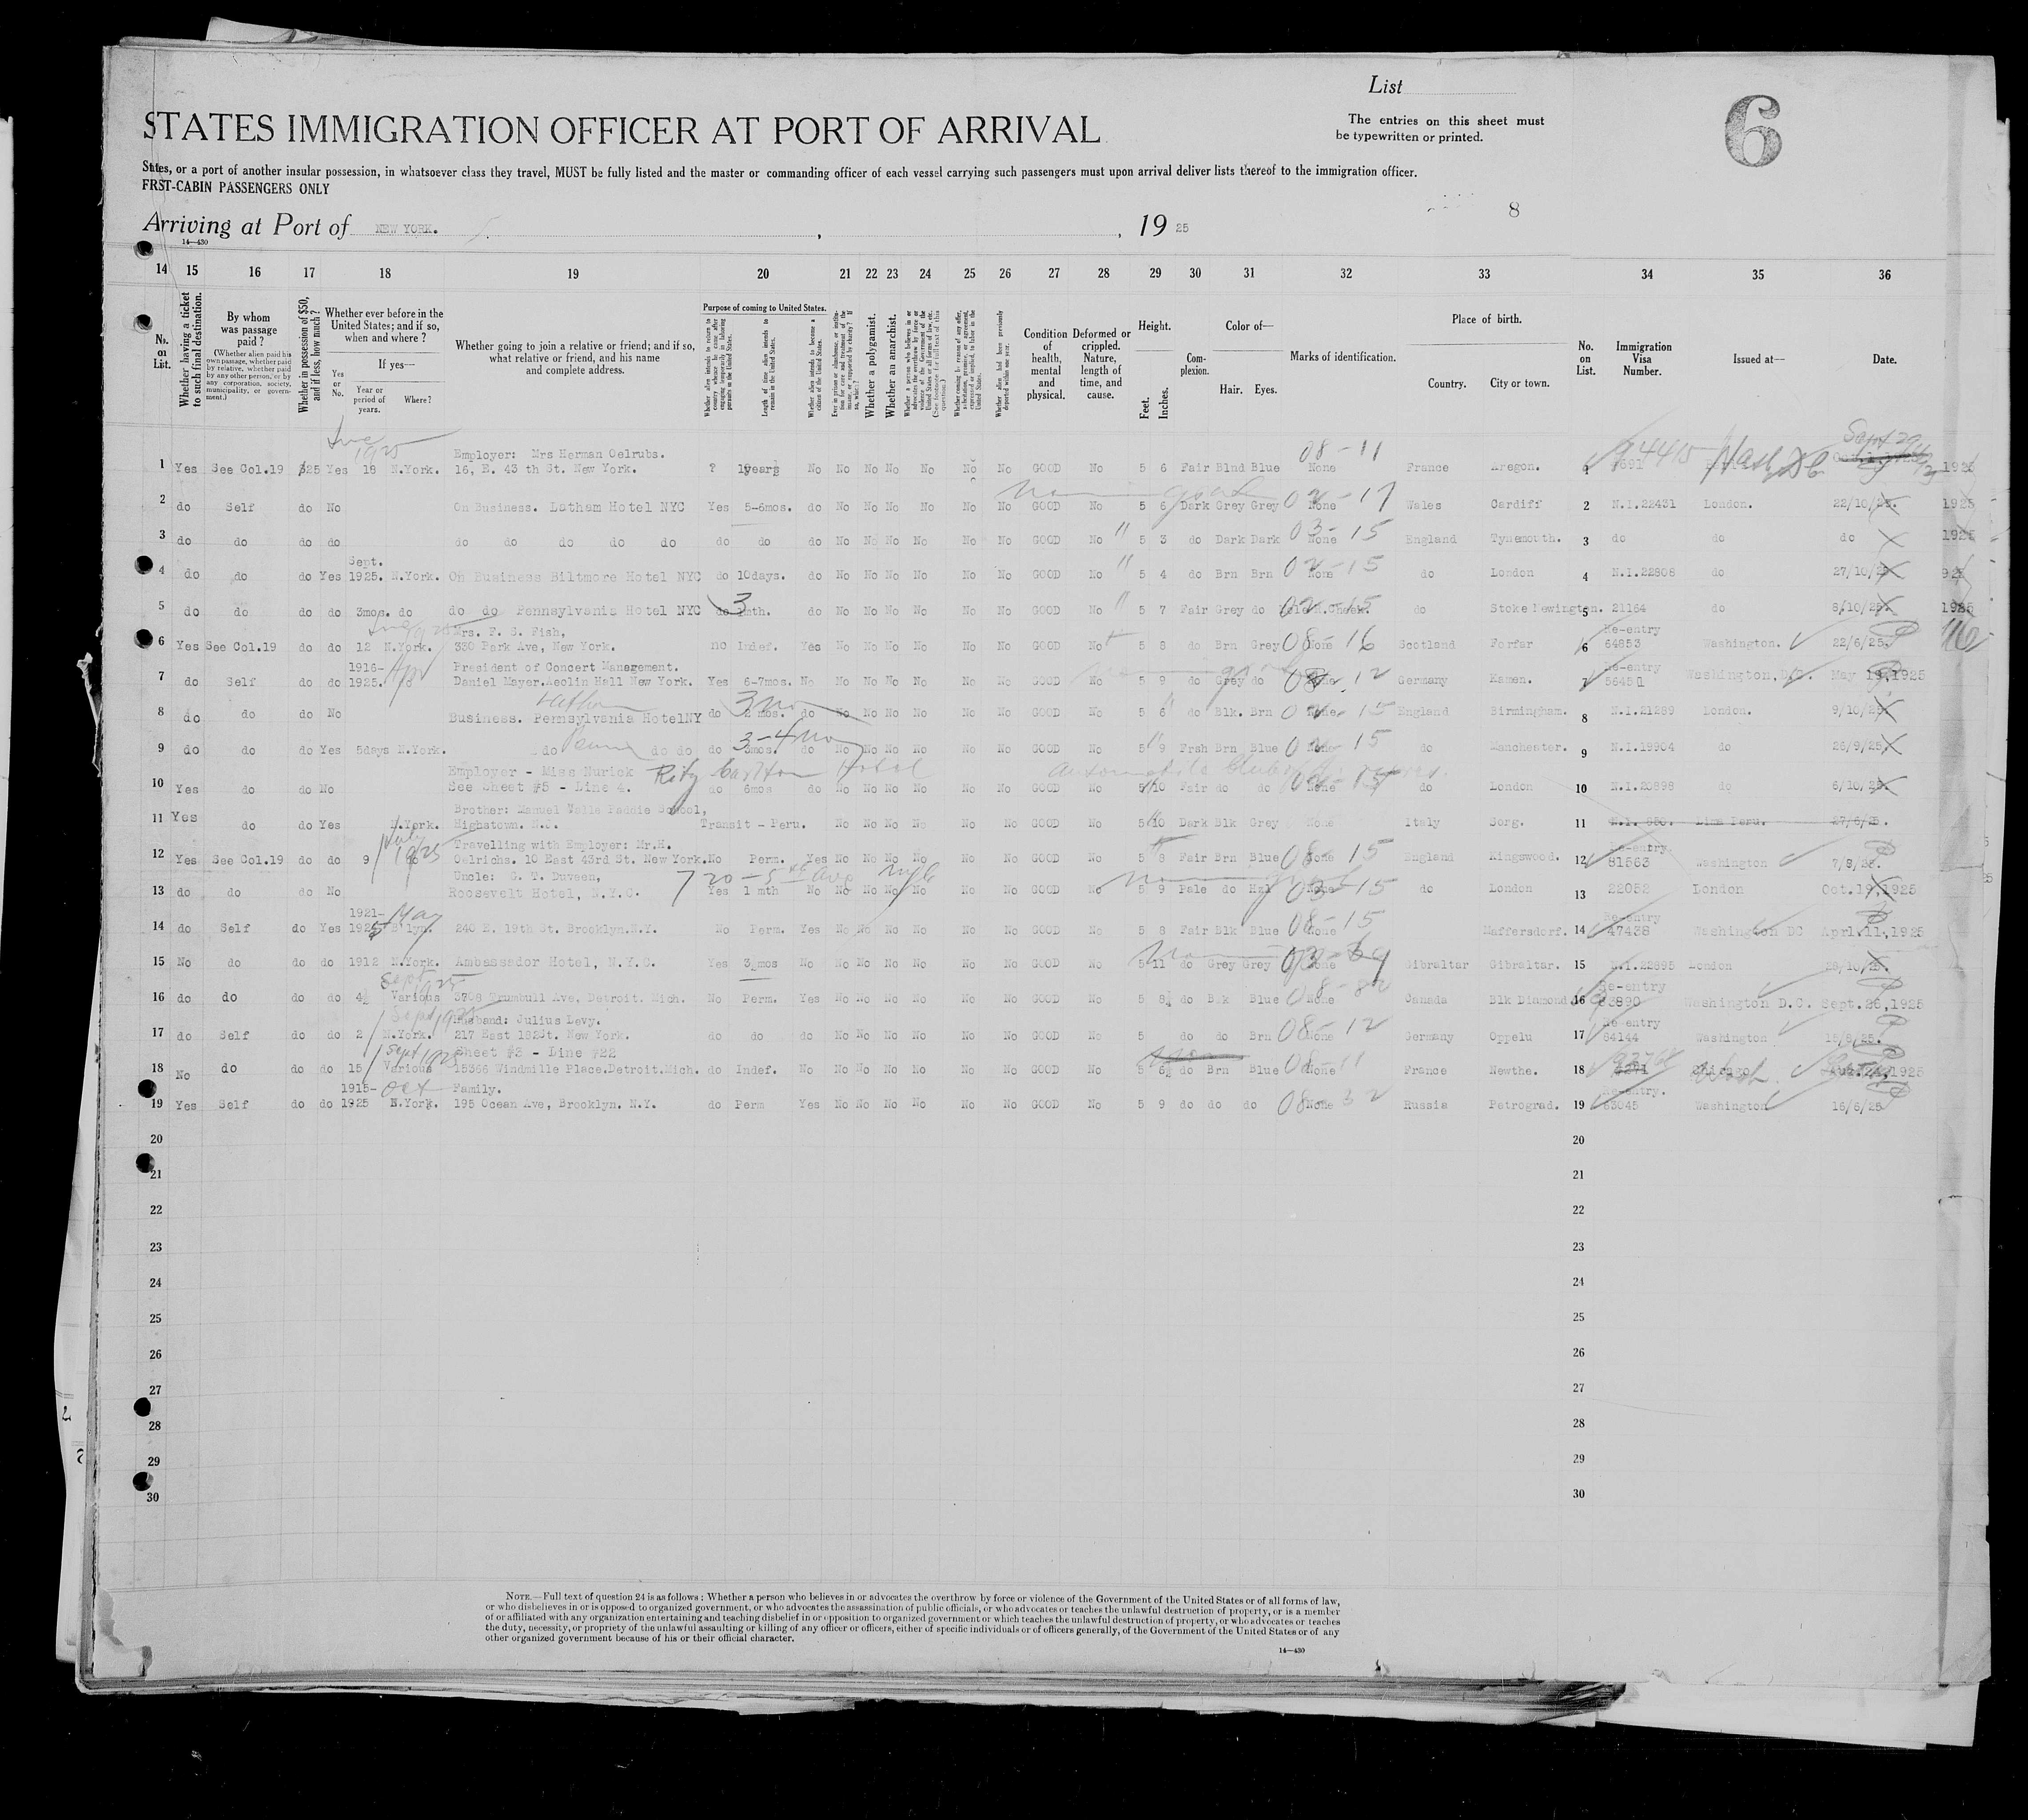 List
STATES IMMIGRATION OFFICER AT PORT OF ARRIVAL
The entries on this sheet must
be typewritten or printed.
6
States, or a port of another insular possession, in whatsoever class they travel, MUST be fully listed and the master or commanding officer of each vessel carrying such passengers must upon arrival deliver lists thereof to the immigration officer.
FRST-CABIN PASSENGERS ONLY
8
Arriving at Port of NEW YORK. , , 19 25
14—430
14 15 16 17 18 19 20 21 22 23 24 25 26 27 28 29 30 31 32 33 34 35 36
No. on List.
Whether having a ticket to such final destination.
By whom was passage paid?
(Whether alien paid his own passage, whether paid by relative, whether paid by any other person, or by any corporation, society, municipality, or government.)
Whether in possession of $50, and if less, how much?
Whether ever before in the United States; and if so, when and where?
Yes or No.
If yes—
Year or period of years.
Where?
Whether going to join a relative or friend; and if so, what relative or friend, and his name and complete address.
Purpose of coming to United States.
Length of time alien intends to remain in the United States.
Whether alien intends to become a citizen of the United States.
Whether a polygamist.
Whether an anarchist.
Condition of health, mental and physical.
Deformed or crippled. Nature, length of time, and cause.
Height.
Feet. Inches.
Complexion.
Color of—
Hair. Eyes.
Marks of identification.
Place of birth.
Country. City or town.
No. on List.
Immigration Visa Number.
Issued at—
Date.
Employer: Mrs Herman Oelrubs. 08-11
1 Yes See Col.19 $25 Yes 18 N.York. 16, E. 43 th St. New York. ? 1years No No No No No No GOOD No 5 6 Fair Blnd Blue None France Aregon. 94415 Wash DC Sept 29 1925
2 do Self do No On Business. Latham Hotel NYC Yes 5-6mos. do No No No No No GOOD No 5 6 Dark Grey Grey 02-17 None Wales Cardiff 2 N.I.22431 London. 22/10/25. 1925
3 do do do do do do do do do do do do No No No No No GOOD No 5 3 do Dark Dark 03-15 None England Tynemouth. 3 do do do 1925
Sept.
4 do do do Yes 1925. N.York. On Business Biltmore Hotel NYC do 10days. do No No No No No GOOD No 5 4 do Brn Brn 02-15 None do London 4 N.I.22808 do 27/10/25
5 do do do do 3mos. do do do Pennsylvania Hotel NYC do 3 mth. do No No No No No GOOD No 5 7 Fair Grey do 02-15 do Stoke Newington. 5 21164 do 8/10/25. 1925
Mrs. F. S. Fish, Re-entry
6 Yes See Col.19 do do 12 N.York. 330 Park Ave, New York. no Indef. Yes No No No No No GOOD No 5 8 do Brn Grey 08-16 None Scotland Forfar 6 64853 Washington. 22/6/25.
1916- Apr President of Concert Management. Re-entry
7 do Self do do 1925. do Daniel Mayer.Aeolin Hall New York. Yes 6-7mos. No No No No No No GOOD No 5 9 do Grey do 08-12 Germany Kamen. 7 Washington, D.C. May 19, 1925
Latham 3 mo
8 do do do No Business. Pennsylvania HotelNY do 2 mos. do No No No No No No GOOD No 5 6 do Blk. Brn 02-15 None England Birmingham. 8 N.I.21289 London. 9/10/25
9 do do do Yes 5days N.York. do Penn do do do 3-4 mo 3mos. do No No No No No No GOOD No 5 9 Frsh Brn Blue 02-15 do Manchester. 9 N.I.19904 do 26/9/25
Employer - Miss Nurick Ritz Carlton Hotel
10 Yes do do No See Sheet #5 - Line 4. do 6mos do No No No No No No GOOD No 5 10 Fair do do None do London 10 N.I.20898 do 6/10/25.
Brother: Manuel Valle Peddie School,
11 Yes do do Yes N.York. Highstown. N.J. Transit - Peru. No No No No No No GOOD No 5 10 Dark Blk Grey None Italy Sorg. 11 N.I. 050. Lima Peru. 27/6/25.
July 1925 Travelling with Employer: Mr.H. Re-entry.
12 Yes See Col.19 do do 9 do Oelrichs. 10 East 43rd St. New York. No Perm. Yes No No No No No No GOOD No 5 8 Fair Brn Blue 08-15 None England Kingswood. 12 81563 Washington 7/8/25.
Uncle: G. T. Duveen, 720-5th Ave NYC
13 do do do No Roosevelt Hotel, N.Y.C. Yes 1 mth No No No No No No No GOOD No 5 9 Pale do Hzl 03-15 None do London 13 22052 London Oct.19,1925
1921- May Re-entry
14 do Self do Yes 1925 B'lyn. 240 E. 19th St. Brooklyn.N.Y. No Perm. Yes No No No No No No GOOD No 5 8 Fair Blk Blue 08-15 None Maffersdorf. 14 47438 Washington DC April.11,1925
15 No do do do 1912 N.York. Ambassador Hotel, N.Y.C. Yes 3 mos No No No No No No No GOOD No 5 11 do Grey Grey None Gibraltar Gibraltar. 15 N.I.22895 London 28/10/25.
Sept 1925 Re-entry
16 do do do do 4½ Various 3708 Trumbull Ave, Detroit. Mich. No Perm. Yes No No No No No No GOOD No 5 8¼ do Blk Blue None Canada Blk Diamond. 16 83890 Washington D.C. Sept.26,1925
Sept 1925 Husband: Julius Levy. Re-entry
17 do Self do do 2 N.York. 217 East 182St. New York. do do do No No No No No No GOOD No 5 do do Brn 08-12 None Germany Oppelu 17 84144 Washington 15/8/25.
Sept 1925 Sheet #3 - Line #22
18 No do do do 15 Various 15366 Windmille Place.Detroit.Mich. do Indef. No No No No No No No GOOD No 5 6¼ do Brn Blue 08-11 None France Newthe. 18 Chicago Wash. 1925
1915- Oct Family. Re-entry.
19 Yes Self do do 1925 N.York. 195 Ocean Ave, Brooklyn. N.Y. do Perm Yes No No No No No No GOOD No 5 9 do do do 08-32 None Russia Petrograd. 19 83045 Washington 16/6/25
20 20
21 21
22 22
23 23
24 24
25 25
26 26
27 27
28 28
29 29
30 30
NOTE.—Full text of question 24 is as follows: Whether a person who believes in or advocates the overthrow by force or violence of the Government of the United States or of all forms of law,
or who disbelieves in or is opposed to organized government, or who advocates the assassination of public officials, or who advocates or teaches the unlawful destruction of property, or is a member
of or affiliated with any organization entertaining and teaching disbelief in or opposition to organized government or which teaches the unlawful destruction of property, or who advocates or teaches
the duty, necessity, or propriety of the unlawful assaulting or killing of any officer or officers, either of specific individuals or of officers generally, of the Government of the United States or of any
other organized government because of his or their official character.
14—430